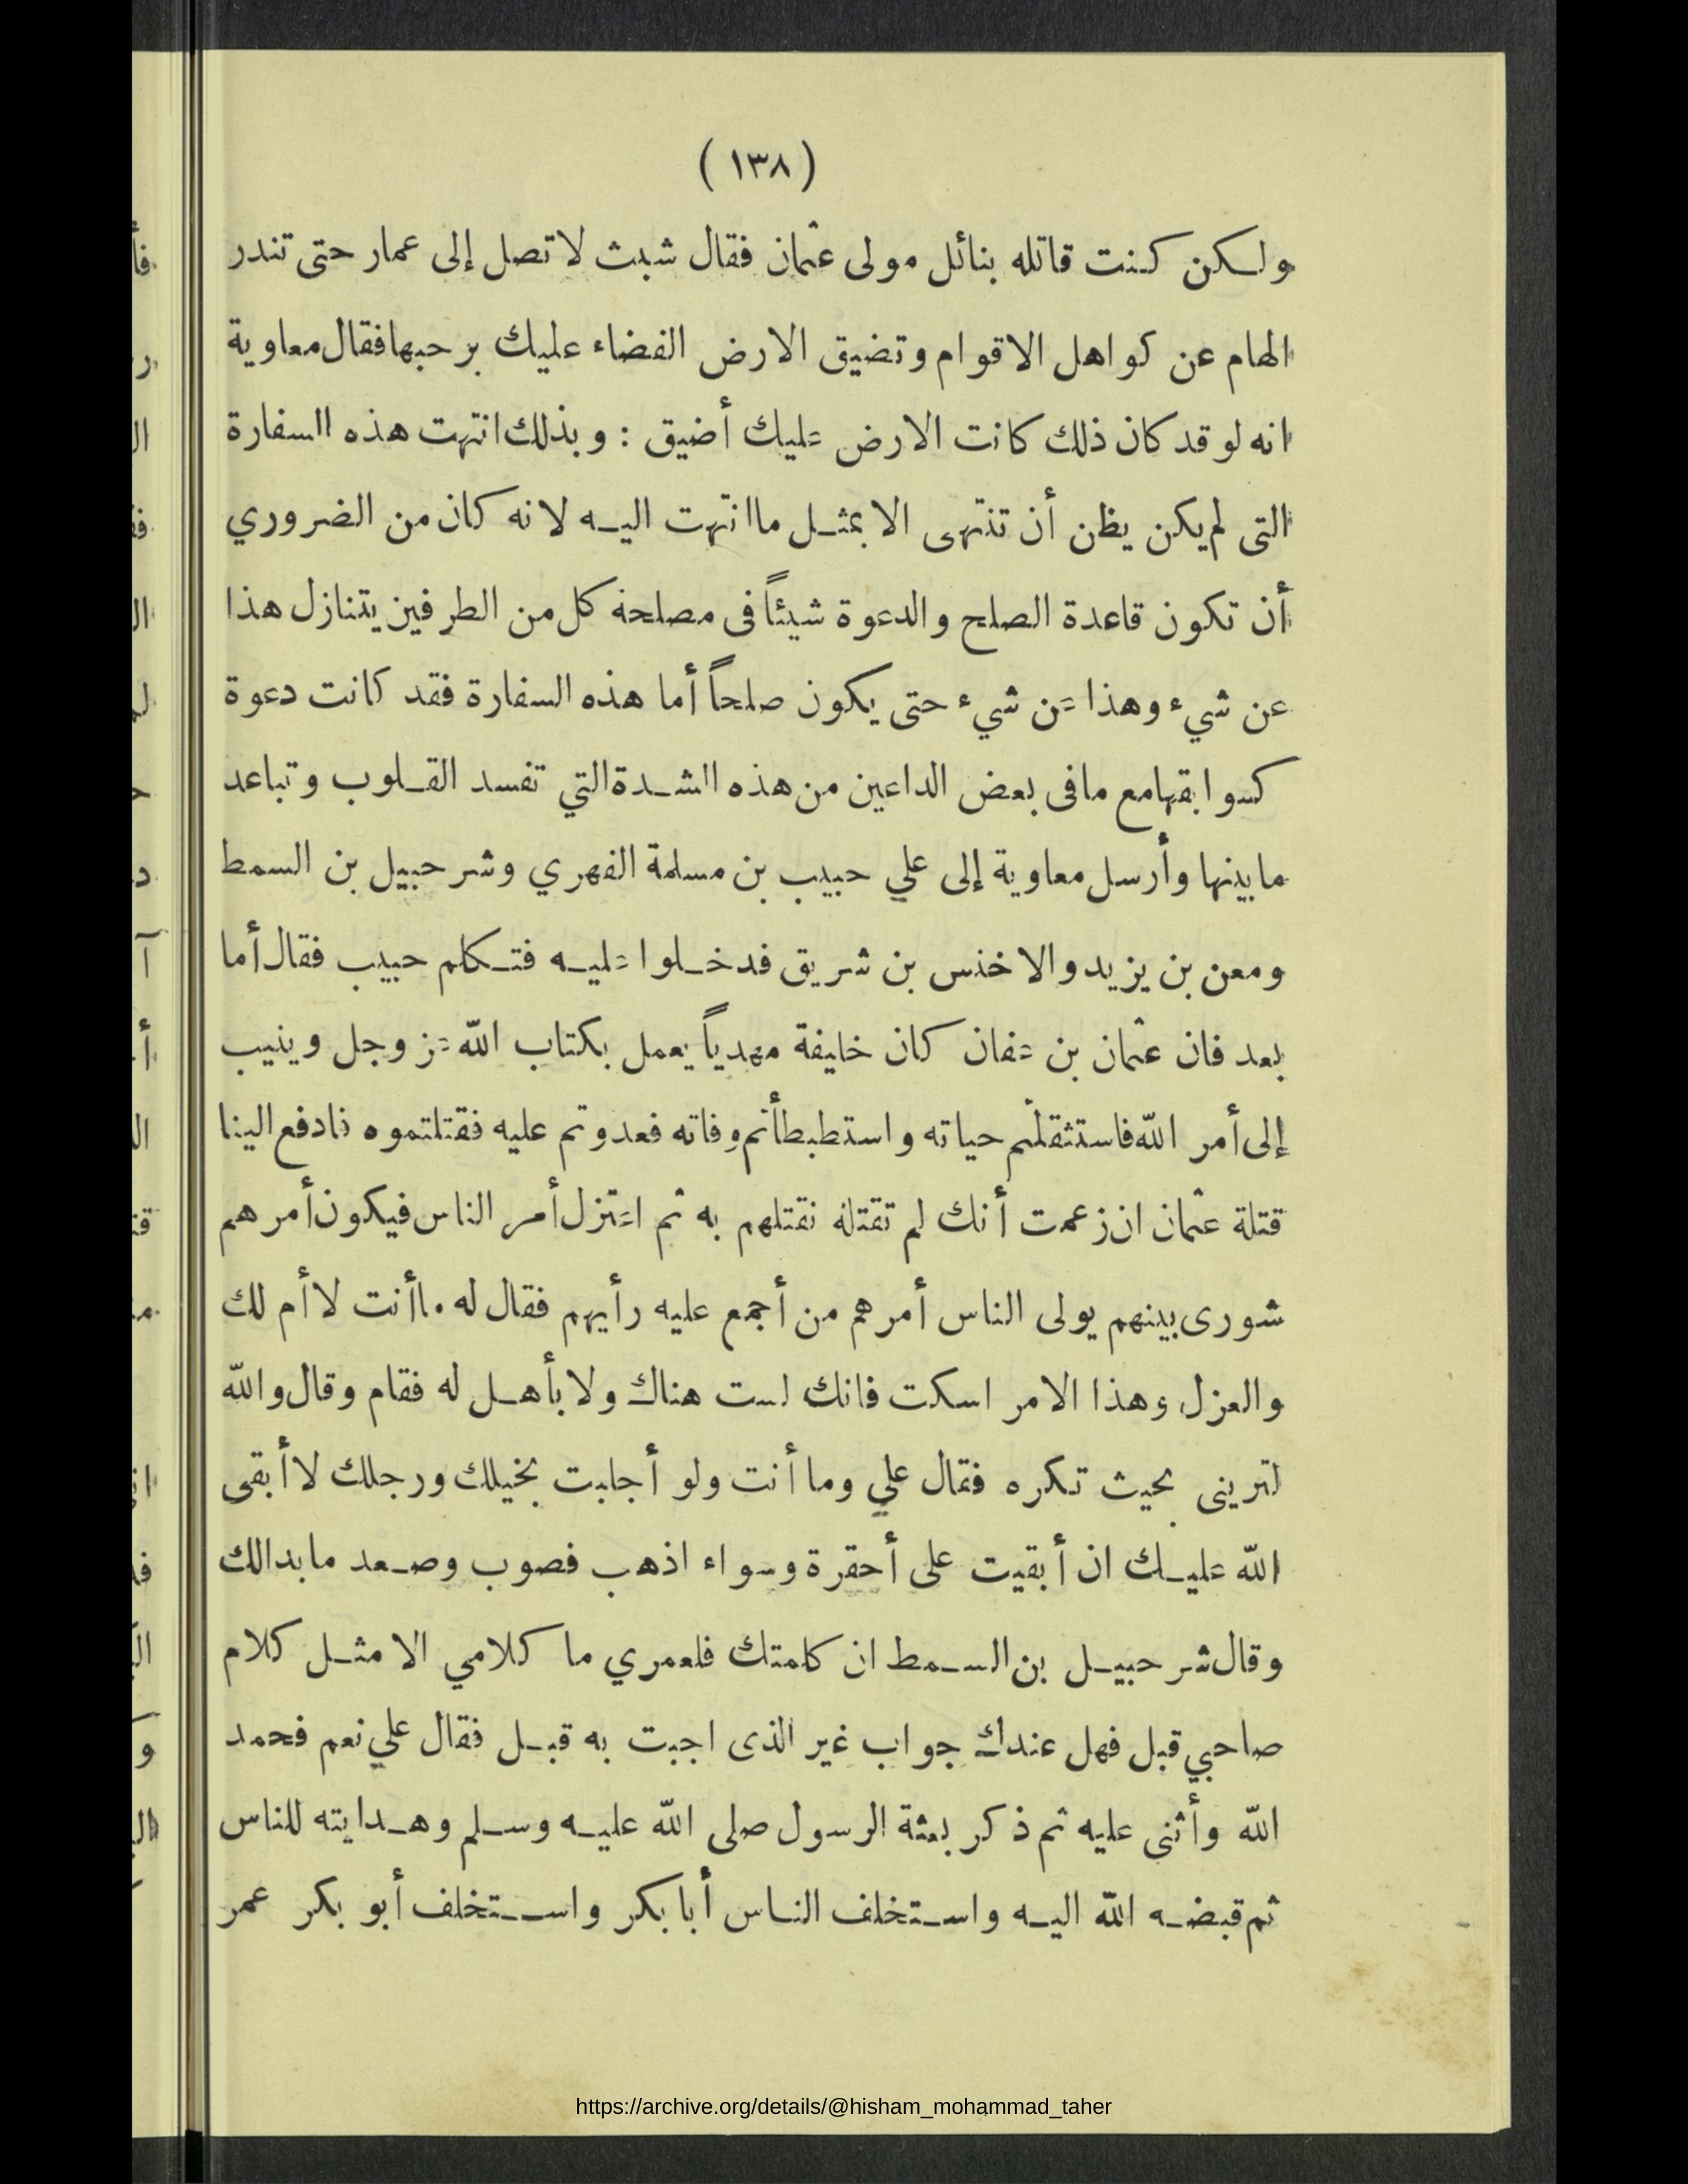 ( ١٣٨ )
ولكن كنت قاتله بنائل مولى عثمان فقال شبث لا تصل إلى عمار حتى تندر
الهام عن كواهل الاقوام وتضيق الارض الفضاء عليك برحبها فقال معاوية
انه لو قد كان ذلك كانت الارض عليك أضيق : وبذلك انتهت هذه السفارة
التى لم يكن يظن أن تنتهى الا بمثل ما انتهت اليه لانه كان من الضروري
أن تكون قاعدة الصلح والدعوة شيئاً فى مصلحة كل من الطرفين يتنازل هذا
عن شيء وهذا عن شيء حتى يكون صلحاً أما هذه السفارة فقد كانت دعوة
كسوابقها مع مافى بعض الداعين من هذه الشدة التي تفسد القلوب وتباعد
ما بينها وأرسل معاوية إلى علي حبيب بن مسلمة الفهري وشرحبيل بن السمط
ومعن بن يزيد والاخنس بن شريق فدخلوا عليه فتكلم حبيب فقال أما
بعد فان عثمان بن عفان كان خليفة مهدياً يعمل بكتاب الله عز وجل وينيب
إلى أمر الله فاستثقلتم حياته واستطبطأتم وفاته فعدوتم عليه فقتلتموه فادفع الينا
قتلة عثمان ان زعمت أنك لم تقتله نقتلهم به ثم اعتزل أمر الناس فيكون أمرهم
شورى بينهم يولى الناس أمرهم من أجمع عليه رأيهم فقال له ما أنت لا أم لك
والعزل وهذا الامر اسكت فانك لست هناك ولا بأهل له فقام وقال والله
لترينى بحيث تكره فقال علي وما أنت ولو أجلبت بخيلك ورجلك لا أبقى
الله عليك ان أبقيت على أحقرة وسواء اذهب فصوب وصعد ما بدالك
وقال شرحبيل بن السمط ان كلمتك فلعمري ما كلامي الا مثل كلام
صاحبي قبل فهل عندك جواب غير الذى اجبت به قبل فقال علي نعم فحمد
الله وأثنى عليه ثم ذكر بعثة الرسول صلى الله عليه وسلم وهدايته للناس
ثم قبضه الله اليه واستخلف الناس أبا بكر واستخلف أبو بكر عمر
https://archive.org/details/@hisham_mohammad_taher